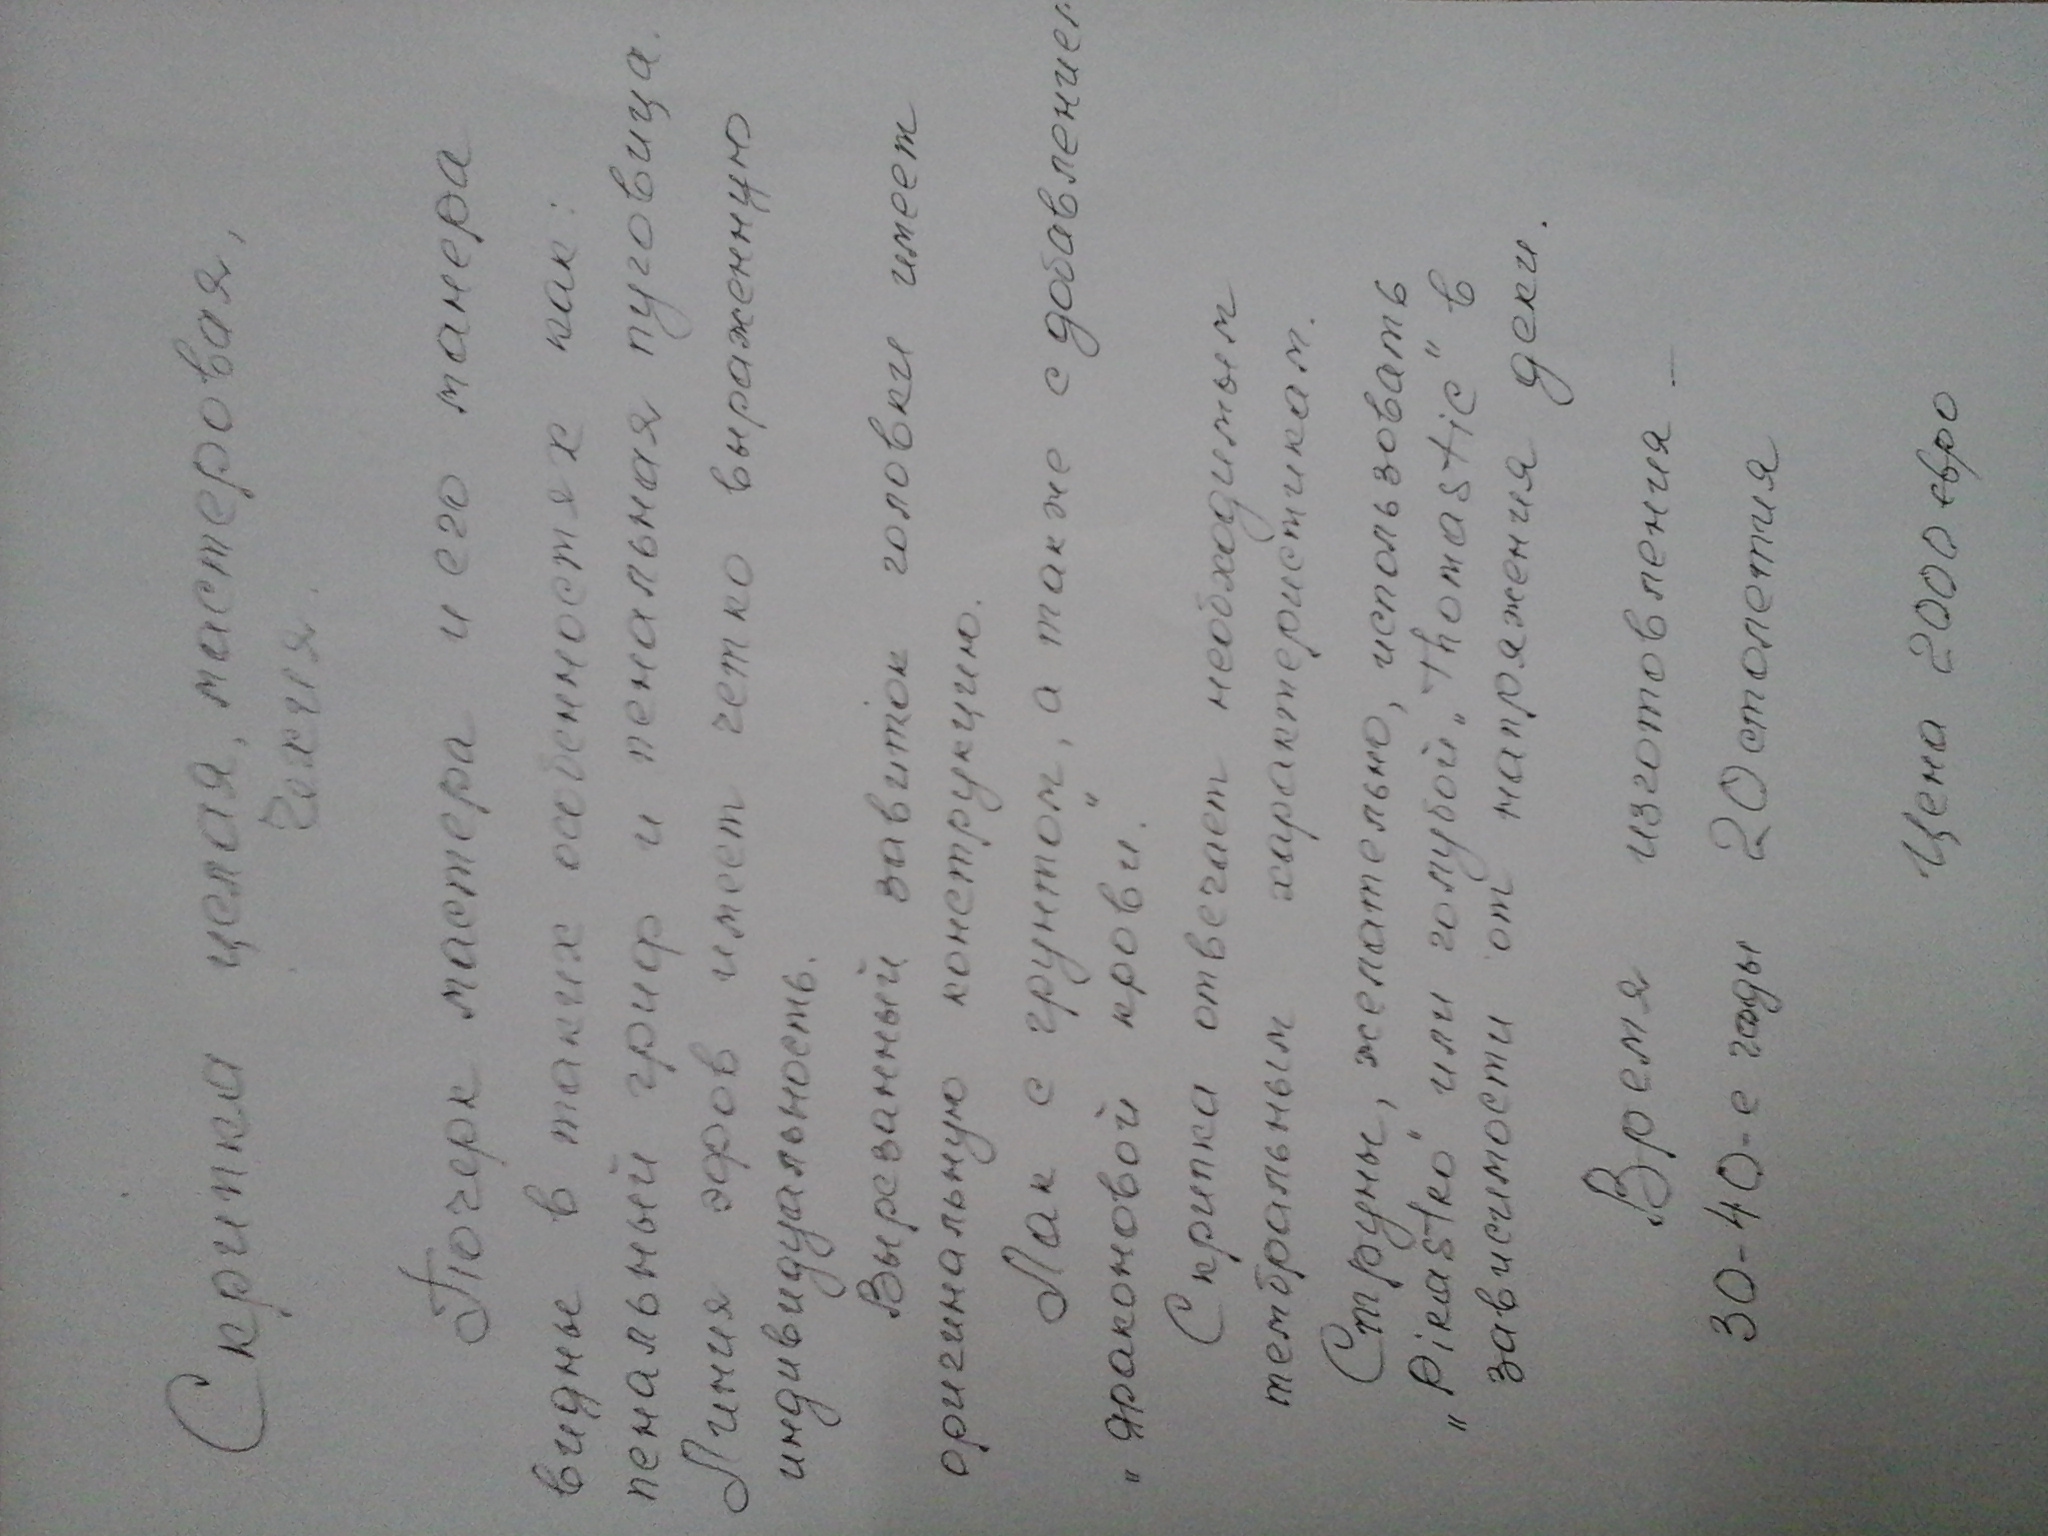 Скрипка целая, мастеровая,
Чехия.
Почерк мастера и его манера
видны в таких особенностях как:
пенальный гриф и пенальная пуговица.
Линия эфов имеет четко выраженную
индивидуальность.
Вырезанный завиток головки имеет
оригинальную конструкцию.
Лак с грунтом, а также с добавлением
„драконовой крови".
Скрипка отвечает необходимым
тембральным характеристикам.
Струны, желательно, использовать
„Pirastro" или голубой „Thomastic" в
зависимости от напряжения деки.
Время изготовления –
30-40-е годы 20 столетия
Цена 2000 евро